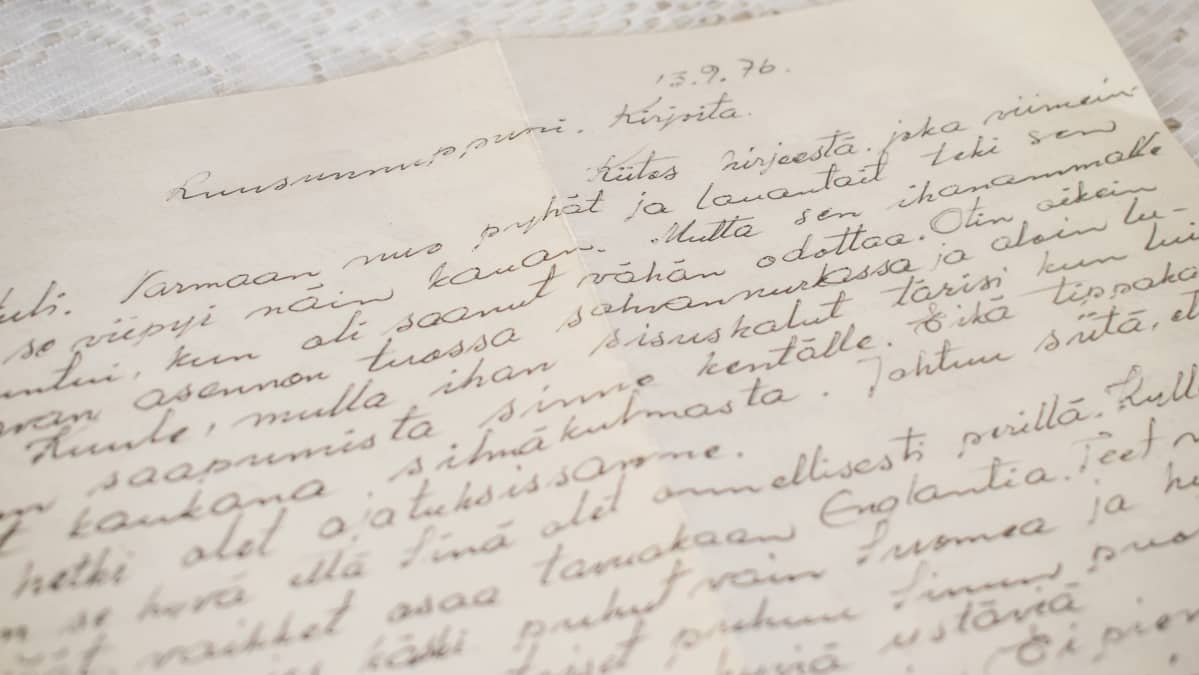 13.9.76.
Ruusunnuppuni. Kirjoita.
Kiitos kirjeestä, joka viimein-
tuli. Varmaan nuo pyhät ja lauantait teki sen
se viipyi näin kauan. Mutta sen ihanammalle
untui, kun oli saanut vähän odottaa. Otin oikein
avan asennon tuossa sohvannurkassa ja aloin lu-
Kuule, mulla ihan sisuskalut tärisi kun lui
n saapumista sinne kentälle. Eikä tippaka
t kaukana silmäkulmasta. Johtuu siitä, et
hetki olet ajatuksissamme.
n se hyvä että Sinä olet onnellisesti perillä. Kyll
ät vaikket osaa tavuakaan Englantia. Teet
käski puhut vain Suomea ja he
toiset puhuu Sinun puo
hyviä ystäviä
Ei pien